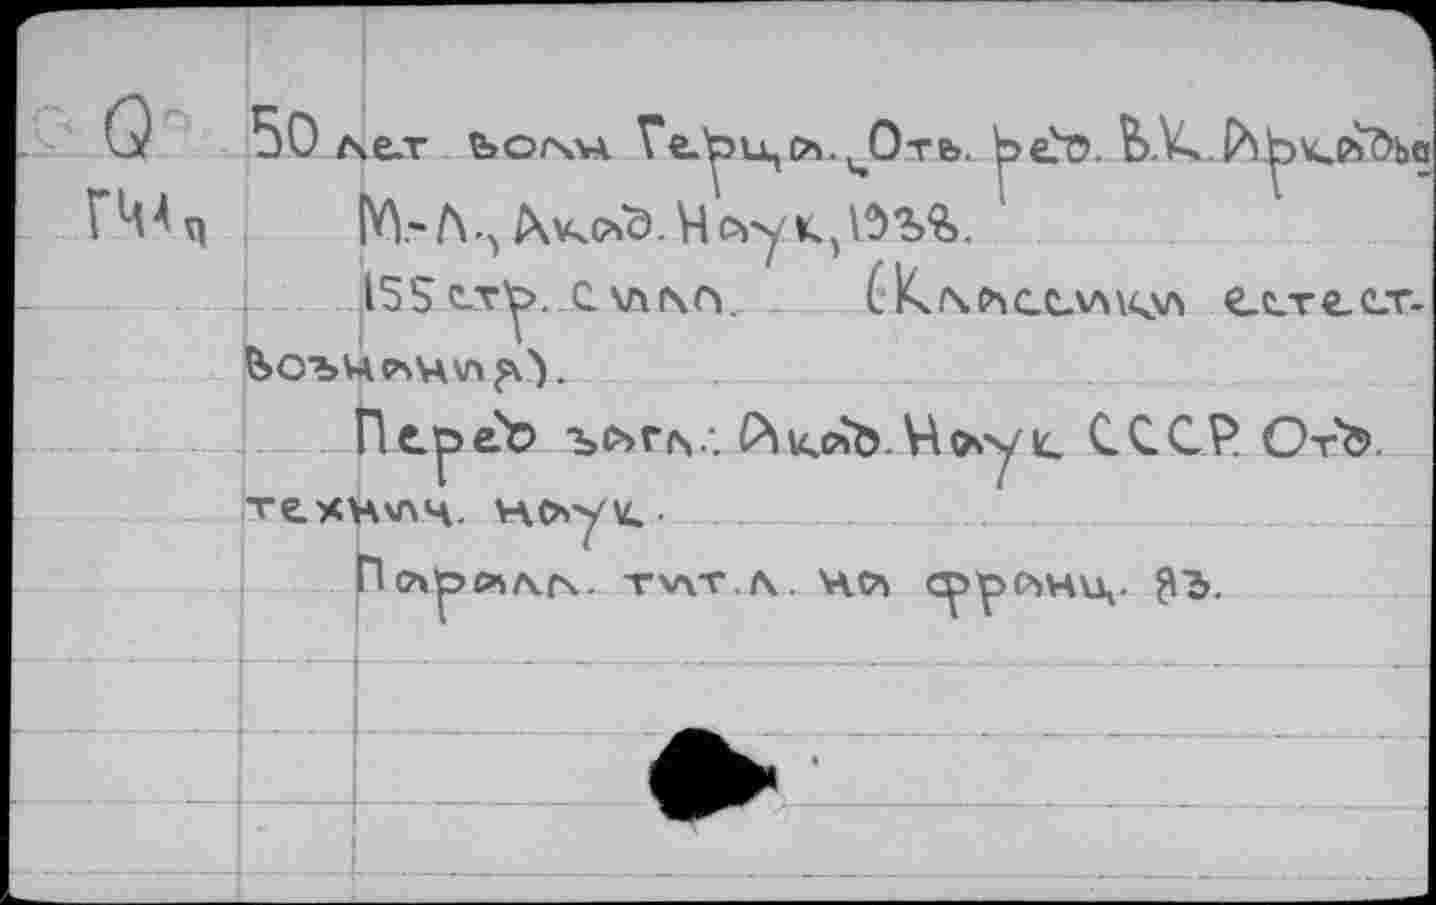 Q 50 лет волн Герца. Отв. ред. В.К. Аркадьев
Г41п М.-Л., Акад. Наук, 1938.
155 стр. с илл. (Классики естест-
вознания).
Перед загл.: Акад. Наук СССР. Отд.
технич. наук.
Паралл. тит. л. на франц. яз.